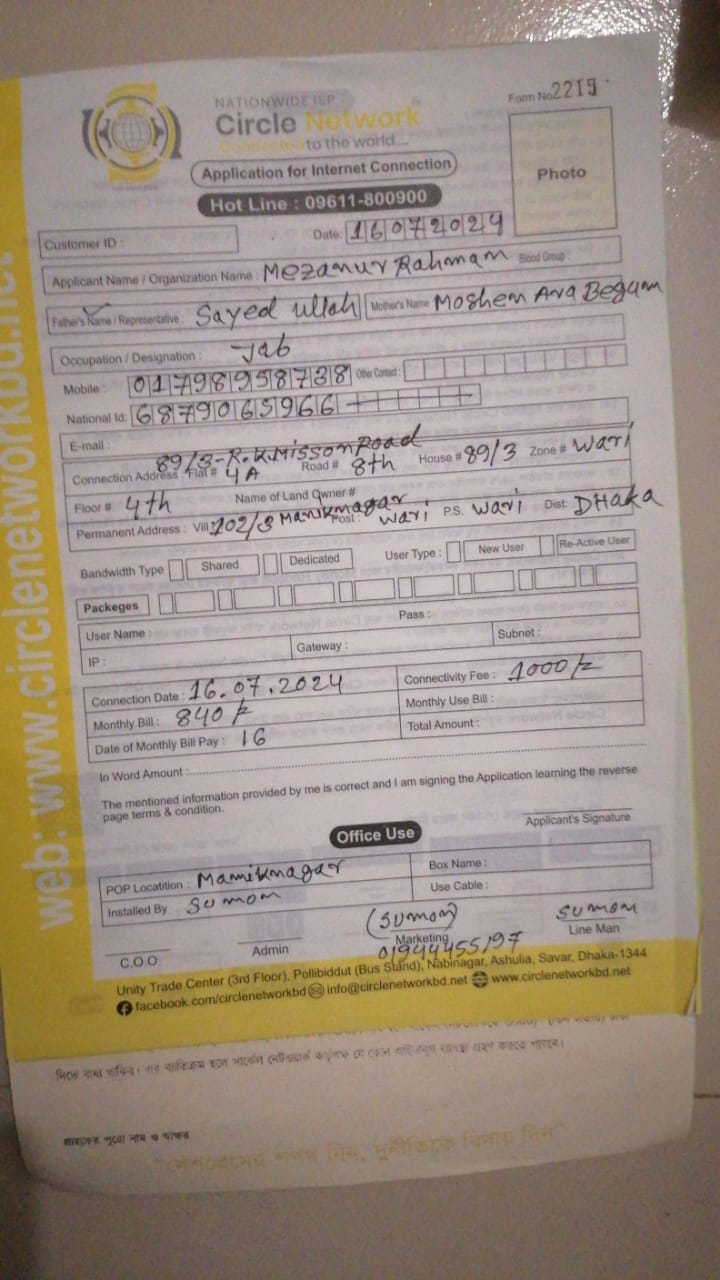 NATIONWIDE ISP
Form No. 2215
Circle Network
Connected to the world...
Application for Internet Connection
Photo
Hot Line : 09611-800900
Customer ID :
Date: 16072024
Applicant Name / Organization Name : Mezanur Rahmam Blood Group :
Father's Name / Representative : Sayed Ullah Mother's Name Moshem Ara Begum
Occupation / Designation : Jab
Mobile : 01798958738 Other Contact :
National Id: 6879065966
E-mail :
89/3-R.K.Misson Road
Connection Address Flat # 4A Road # 8th House # 89/3 Zone # Wari
Floor # 4th Name of Land Owner #
Permanent Address : Vill: 102/3 Manikmagar Post : Wari P.S. Wari Dist: DHaka
Bandwidth Type Shared Dedicated User Type : New User Re-Active User
Packeges
User Name : Pass :
IP : Gateway : Subnet :
Connection Date : 16.07.2024 Connectivity Fee : 1000/=
Monthly Bill : 840/= Monthly Use Bill :
Date of Monthly Bill Pay : 16 Total Amount :
In Word Amount :
The mentioned information provided by me is correct and I am signing the Application learning the reverse
page terms & condition.
Applicant's Signature
Office Use
POP Locatition : Mamikmagar Box Name :
Installed By Sumon Use Cable :
(Sumon) Sumon
C.O.O Admin Marketing Line Man
01944455197
Unity Trade Center (3rd Floor), Pollibiddut (Bus Stand), Nabinagar, Ashulia, Savar, Dhaka-1344
facebook.com/circlenetworkbd info@circlenetworkbd.net www.circlenetworkbd.net
web: www.circlenetworkbd.net
দিতে বাধ্য থাকিব। তার ব্যতিক্রম হলে সার্কেল নেটওয়ার্ক কর্তৃপক্ষ যে কোন আইনানুগ ব্যবস্থা গ্রহণ করতে পারবে।
গ্রাহকের পুরো নাম ও স্বাক্ষর
"দেশপ্রেমের শপথ নিন, দুর্নীতিকে বিদায় দিন"